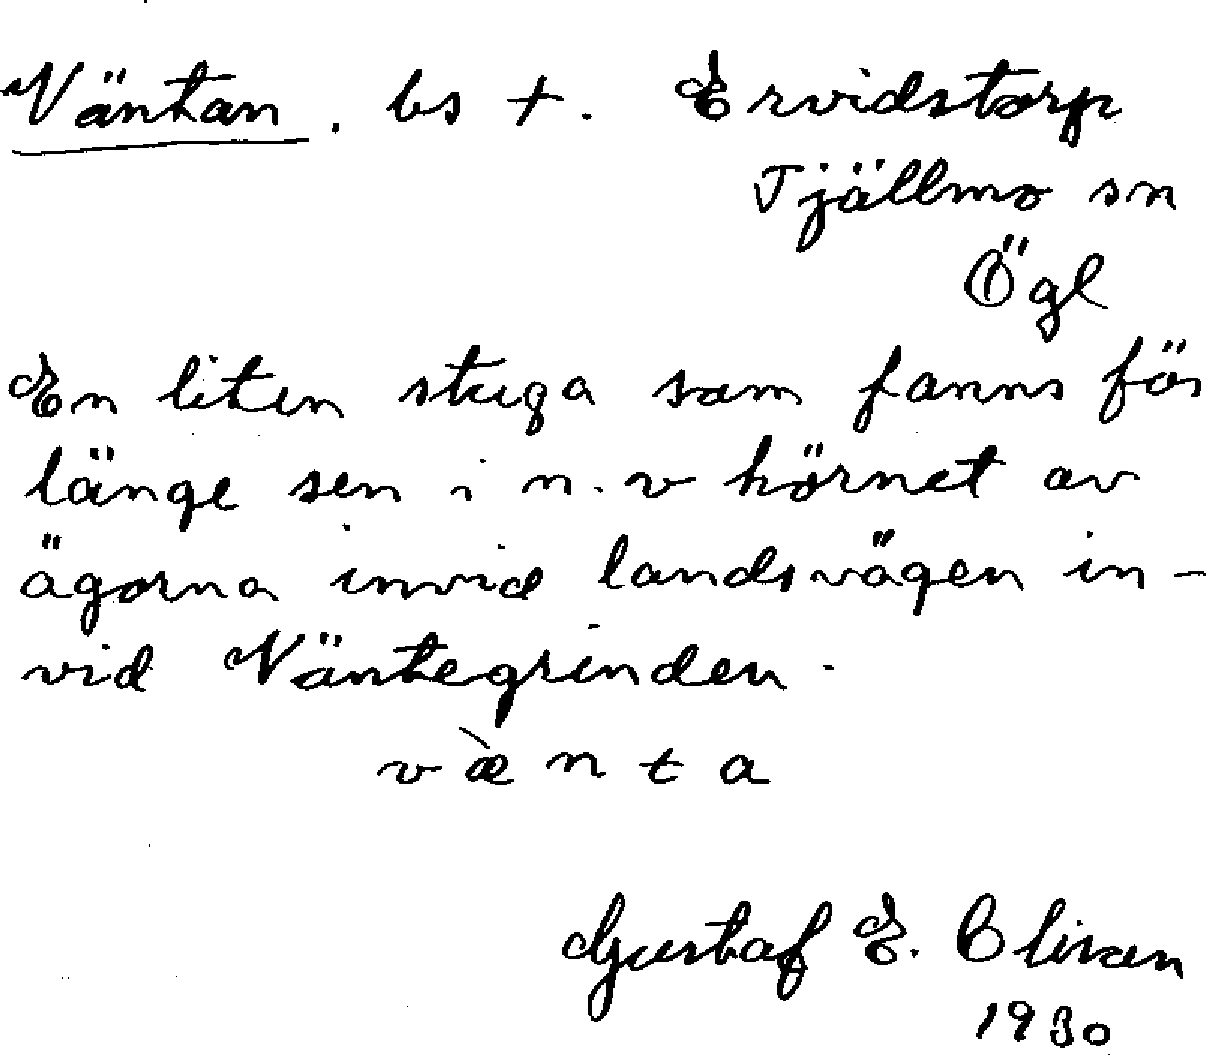 Väntan. bs †. Ervidstorp
Tjällmo sn
Ögl
En liten stuga som fanns för
länge sen i n.v hörnet av
ägorna invid landsvägen in-
vid Väntegrinden.
væ̀nta
Gustaf E.
1930